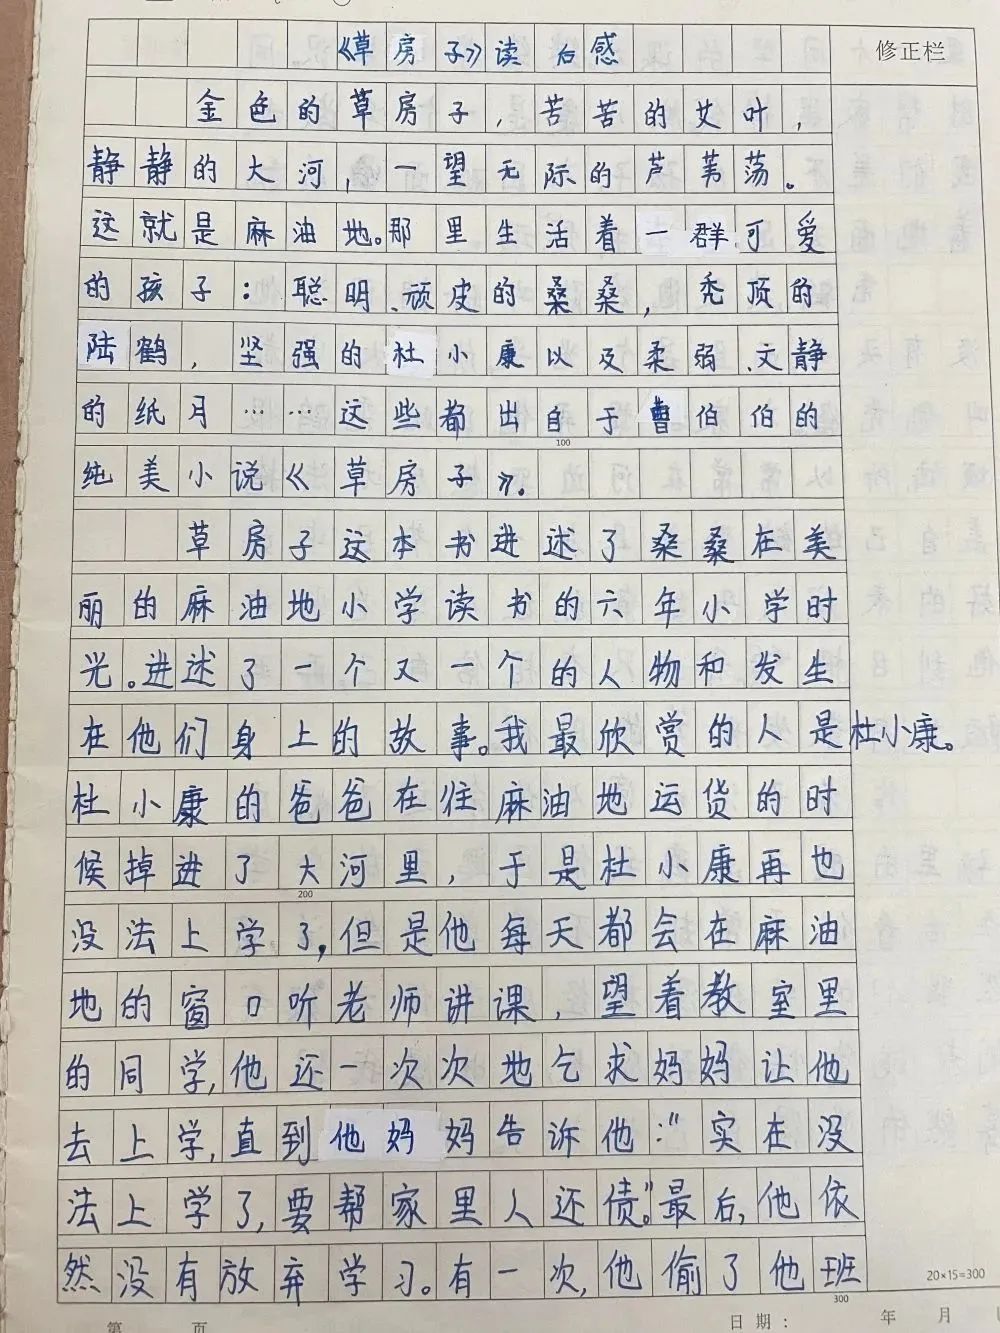 《草房子》读后感
修正栏
金色的草房子，苦苦的艾叶，
静静的大河，一望无际的芦苇荡。
这就是麻油地。那里生活着一群可爱
的孩子：聪明、顽皮的桑桑，秃顶的
陆鹤，坚强的杜小康以及柔弱、文静
的纸月……这些都出自于曹伯伯的
100
纯美小说《草房子》。
草房子这本书进述了桑桑在美
丽的麻油地小学读书的六年小学时
光。进述了一个又一个的人物和发生
在他们身上的故事。我最欣赏的人是杜小康。
杜小康的爸爸在往麻油地运货的时
候掉进了大河里，于是杜小康再也
200
没法上学了，但是他每天都会在麻油
地的窗口听老师讲课，望着教室里
的同学，他还一次次地乞求妈妈让他
去上学，直到他妈妈告诉他：“实在没
法上学了，要帮家里人还债。”最后，他依
然没有放弃学习。有一次，他偷了他班
20×15=300
300
第 页 日期： 年 月